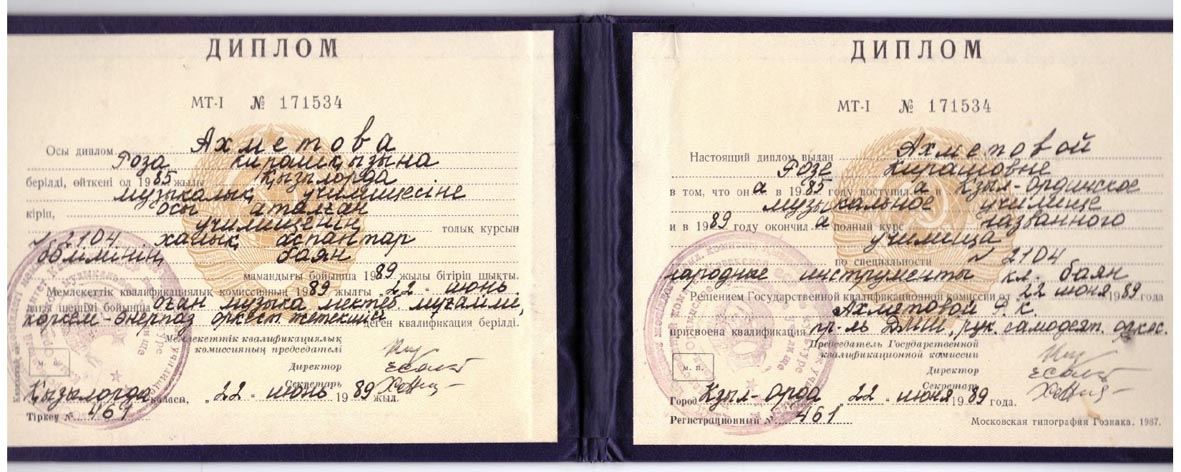 ДИПЛОМ
МТ-I № 171534
Осы диплом Ахметова
Роза Кирашқызына
берілді, өйткені ол 1985 жылы Қызылорда
музыкалық училищесіне
кіріп, осы аталған
училищенің толық курсын
№ 2104 халық аспаптар
бөлімінің баян
мамандығы бойынша 1989 жылы бітіріп шықты.
Мемлекеттік квалификациялық комиссияның 1989 жылғы 22 июнь
шешімі бойынша оған музыка мектеб мұғалімі,
көркем-өнерпаз оркест жетекшісі деген квалификация берілді.
Мемлекеттік квалификациялық
комиссияның председателі
Директор
Секретарь
Қызылорда қаласы, 22 июнь 1989 жыл.
Тіркеу № 461
ДИПЛОМ
МТ-I № 171534
Настоящий диплом выдан Ахметовой
Розе Кирашовне
в том, что она в 1985 году поступила в Кзыл-Ординское
музыкальное училище
и в 1989 году окончила полный курс названного
училища
по специальности № 2104
народные инструменты кл. баян
Решением Государственной квалификационной комиссии от 22 июня 1989 года
Ахметовой Р. К.
присвоена квалификация пр-ль ДМШ, рук. самодеят. оркес.
Председатель Государственной
квалификационной комиссии
Директор
Секретарь
м. п.
Город Кзыл-Орда 22 июня 1989 года.
Регистрационный № 461
Московская типография Гознака. 1987.